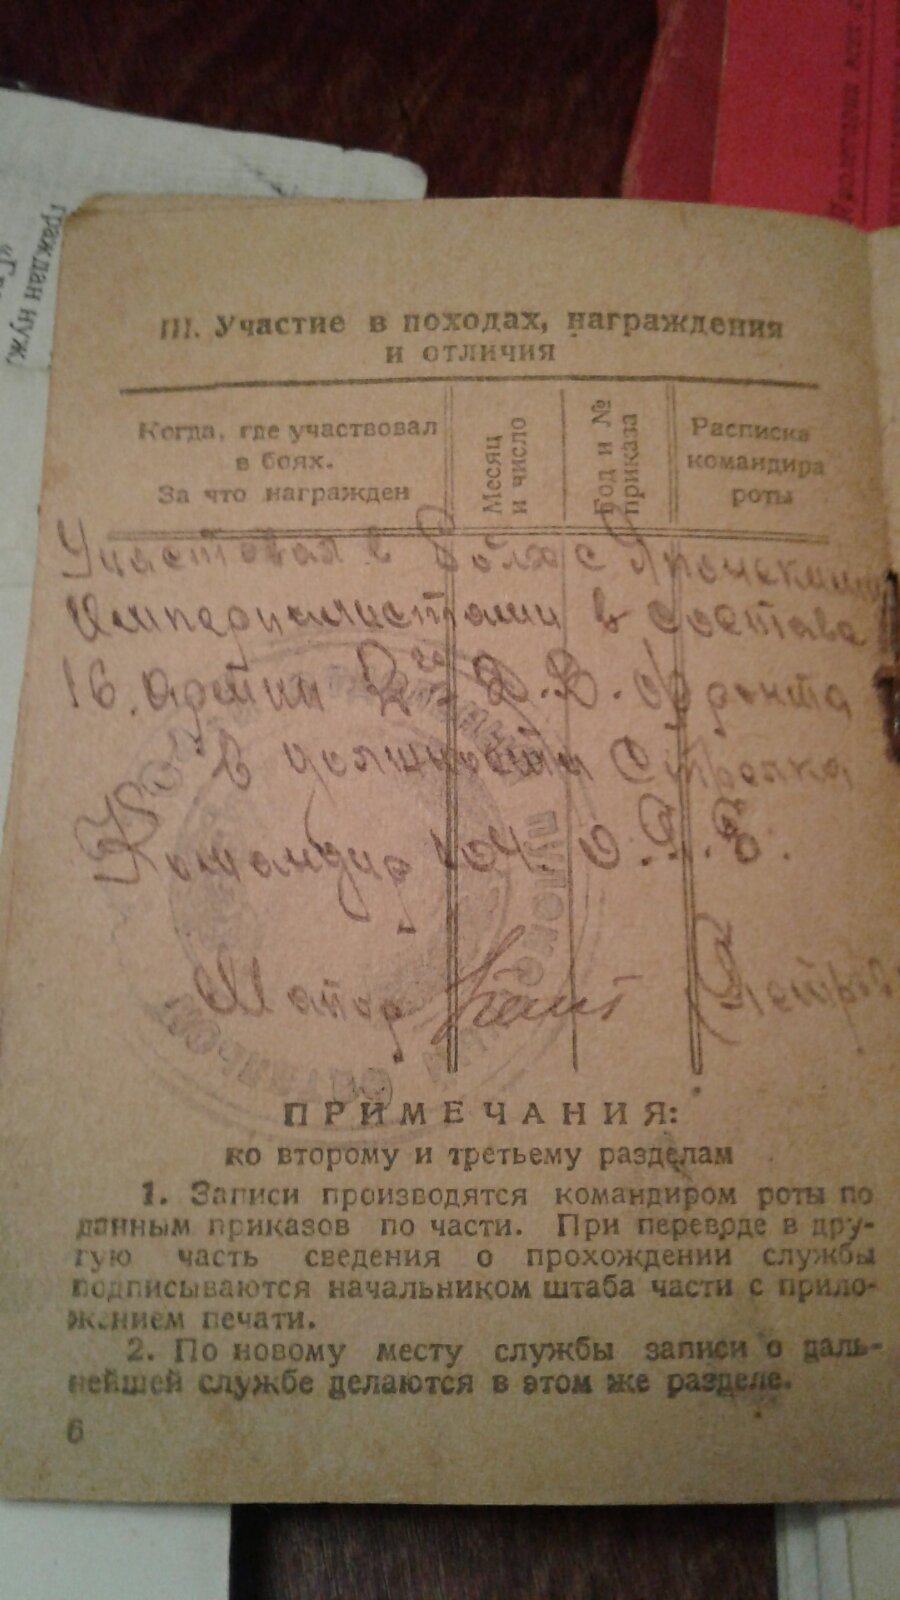 граждан нуж
III. Участие в походах, награждения
и отличия
Когда, где участвовал
в боях.
За что награжден
Месяц
и число
Год и №
приказа
Расписка
командира
роты
Участвовал в боях с Японскими
Империалистами в составе
16. армии 2го Д.В. фронта
в должности Стрелка
Командир 104. О.
Майор
Петров
ПРИМЕЧАНИЯ:
ко второму и третьему разделам
1. Записи производятся командиром роты по
данным приказов по части. При переводе в дру-
гую часть сведения о прохождении службы
подписываются начальником штаба части с прило-
жением печати.
2. По новому месту службы записи о даль-
нейшей службе делаются в этом же разделе.
6